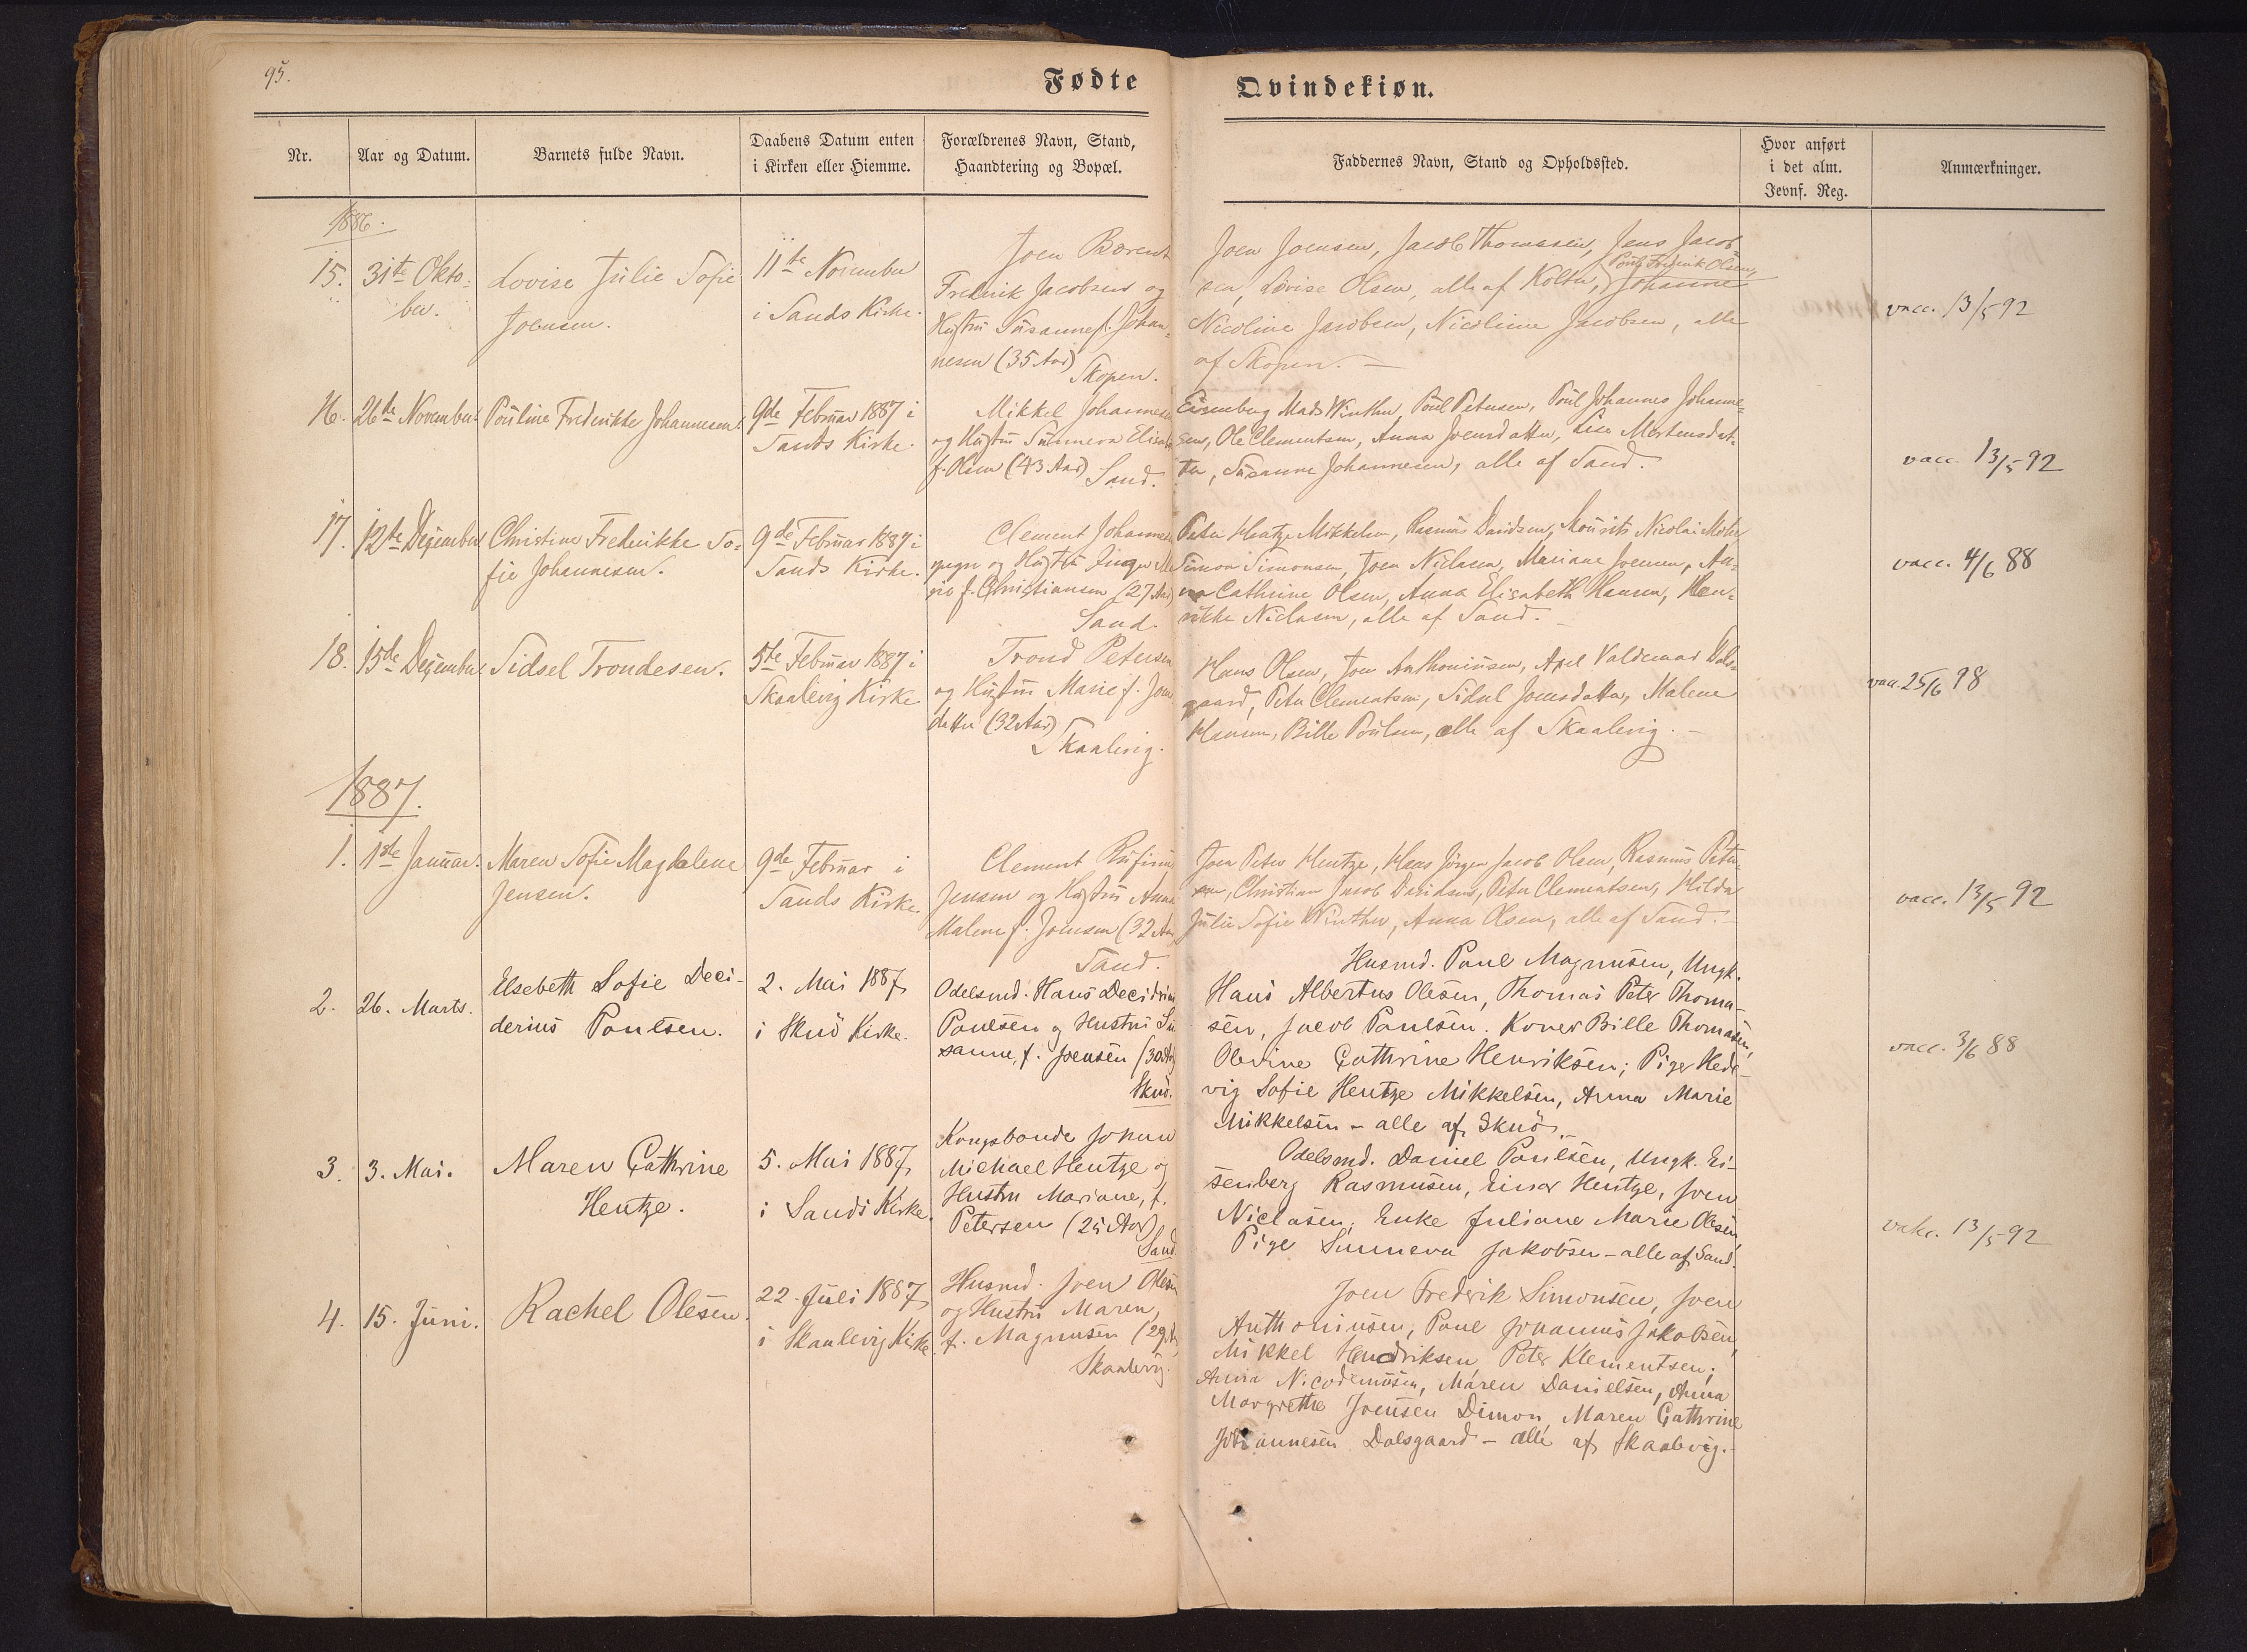 95.
Fødte
Qvindekiøn.
Nr.
Aar og Datum.
Barnets fulde Navn.
Daabens Datum enten
i Kirken eller Hiemme.
Forældrenes Navn, Stand,
Haandtering og Bopæl.
Faddernes Navn, Stand og Opholdssted.
Hvor anført
i det alm.
Jevnf. Reg.
Anmærkninger.
1886.
15.
31te Okto-
ber.
Lovise Julie Sofie
Joensen.
11te November
i Sands Kirke.
Joen Barent
Frederik Jacobsens og
Hustru Susanne f. Johan-
nesen (35 Aar)
Skopen.
Joen Joensen, Jacob Thomasen, Jens Jacob-
sen, Lovise Olsen, alle af Kolter, Poul Frederik Olsen, Johanne
Nicoline Jacobsen, Nicoline Jacobsen, alle
af Skopen. —
vacc. 13/5 92
16.
26de November.
Pouline Frederikke Johannesen.
9de Februar 1887 i
Sands Kirke.
Mikkel Johannesen
og Hustru Sunneva Elisab
f. Olsen (43 Aar)
Sand.
Eisenberg Mads Winther, Poul Petersen, Poul Johannes Johanne-
sen, Ole Clementsen, Anna Joensdatter, Lise Mortensdat-
ter, Susanne Johannesen, alle af Sand.
vacc. 13/5 92
17.
12te Dezember
Christine Frederikke So-
fie Johannesen.
9de Februar 1887 i
Sands Kirke.
Clement Johannes
og Hustru Inger Ma
rie f. Christiansen (27 Aar)
Sand.
Peter Hentze Mikkelsen, Rasmus Davidsen, Mourits Nicolai Mohr
Simon Simonsen, Joen Niclasen, Mariane Joensen, An-
na Cathrine Olsen, Anna Elisabeth Hansen, Hen-
rikke Niclasen, alle af Sand. —
vacc. 4/6 88
18.
15de Dezember.
Sidsel Trondesen.
5te Februar 1887 i
Skaalevig Kirke
Trond Petersen
og Hustru Marie f. Joens
datter (32 Aar)
Skaalevig.
Hans Olsen, Joen Anthoniussen, Axel Valdemar Dals-
gaard, Peter Clementsen, Sidsel Joensdatter, Malene
Hansen, Bille Poulsen, alle af Skaalevig. —
vacc. 25/6 98
1887.
1.
1ste Januar.
Maren Sofie Magdalene
Jensen.
9de Februar i
Sands Kirke.
Clement Rufinus
Jensen og Hustru Anna
Malene f. Joensen (32 Aar
Sand.
Joen Peter Hentze, Hans Jörgen Jacob Olsen, Rasmus Peter-
sen, Christian Jacob Davidsens, Peter Clementsen, Hilda
Julie Sofie Winther, Anna Olsen, alle af Sand. —
vacc. 13/5 92
2.
26. Marts.
Elsebeth Sofie Deci-
derius Poulsen.
2. Mai 1887
i Skuö Kirke.
Odelsmd. Hans Deciderius
Poulsen og Hustru Su
sanne, f. Joensen (30 Aar)
Skuö.
Husmd. Poul Magnusen, Ungk.
Hans Albertus Olesen, Thomas Peter Thoma-
sen, Jacob Poulsen. Koner Bille Thomasen,
Olevine Cathrine Henriksen; Piger Hede-
vig Sofie Hentze Mikkelsen, Anna Marie
Mikkelsen – alle af Skuö. —
vacc. 3/6 88
3.
3. Mai.
Maren Cathrine
Hentze.
5. Mai 1887
i Sands Kirke.
Kongsbonde Johan
Michael Hentze og
Hustru Mariane, f.
Petersen (25 Aar)
Sand.
Odelsmd. Daniel Poulsen, Ungk. Ei-
senberg Rasmusen, Einar Hentze, Joen
Niclasen; Enke Juliane Marie Olesen,
Pige Sunneva Jakobsen – alle af Sand.
vakc. 13/5 92
4.
15. Juni.
Rachel Olesen.
22. Juli 1887
i Skaalevig Kirke.
Husmd. Joen Olesen
og Hustru Maren,
f. Magnusen (29 Aar)
Skaalevig.
Joen Frederik Simonsen, Joen
Anthoniusen, Poul Johannes Jakobsen,
Mikkel Hendriksen Peter Klementsen;
Anna Nicodemusen, Maren Danielsen, Anna
Margrethe Joensen Dimon, Maren Cathrine
Johannesen Dalsgaard – alle af Skaalevig. —